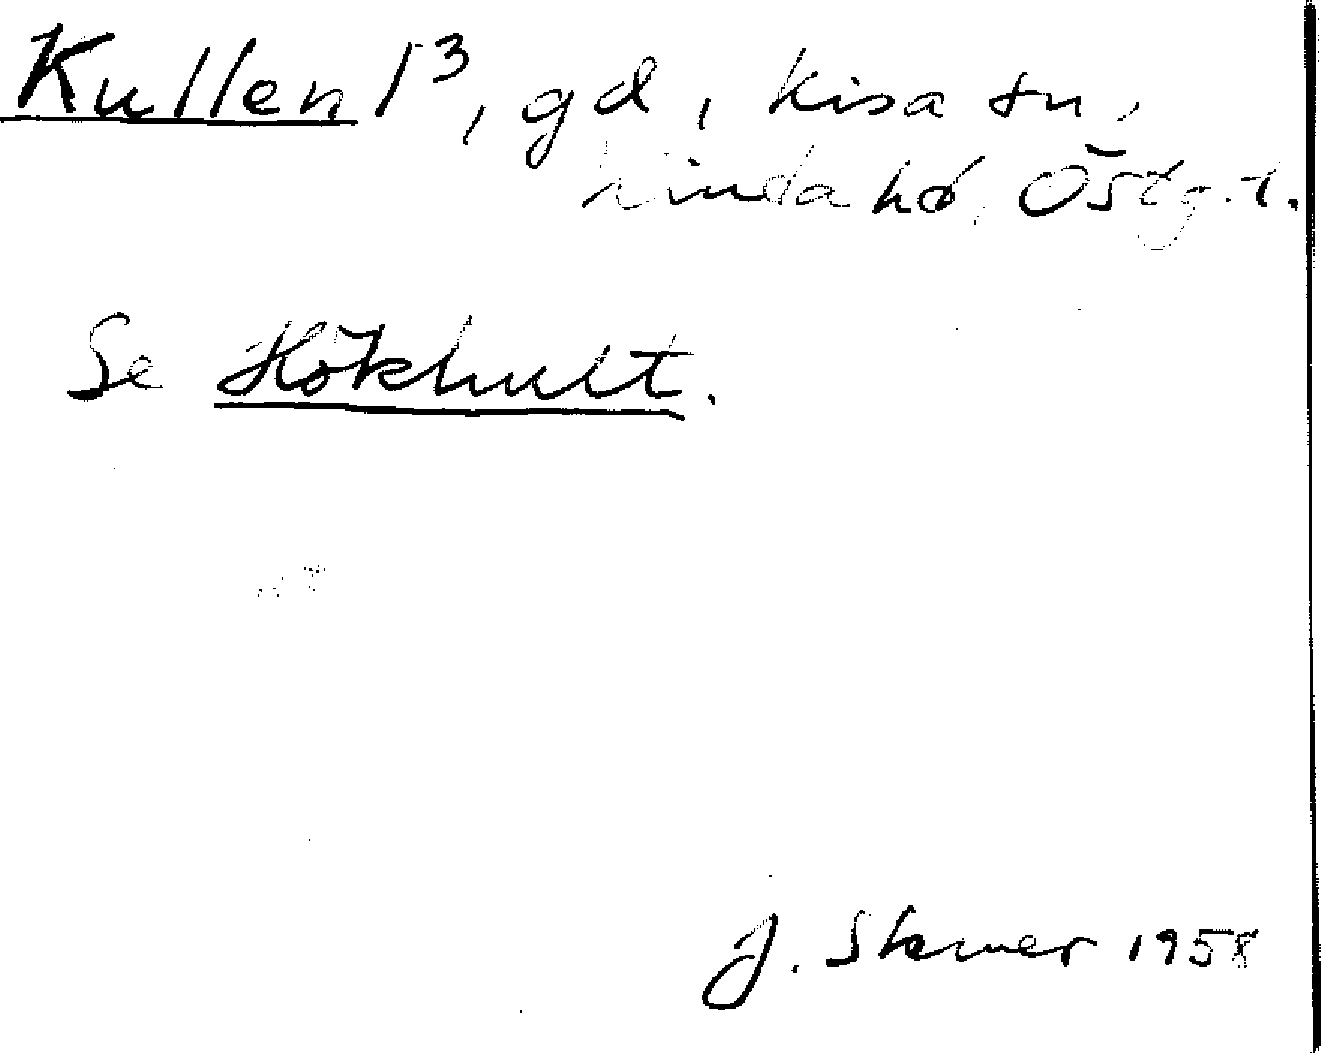 Kullen 1³, gd, Kisa sn,
Kinda hd, Östg. l.
Se Hökhult.
J. Stamer 1958